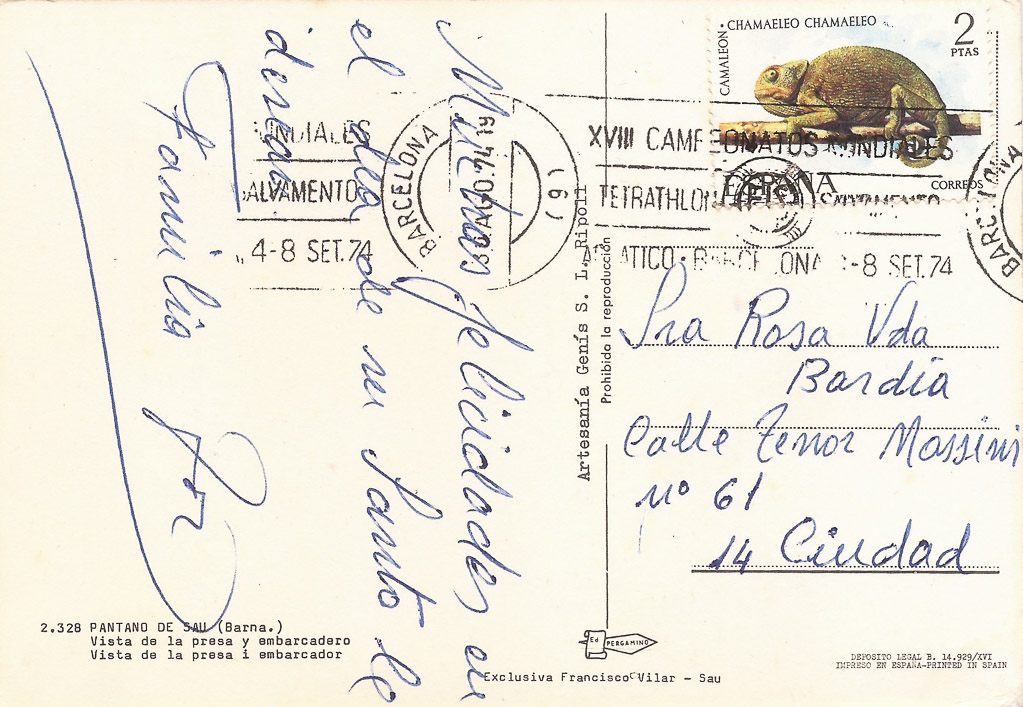 CHAMAELEO CHAMAELEO
CAMALEON
2
PTAS
ESPAÑA
CORREOS
XVIII CAMPEONATOS MUNDIALES
TETRATHLON SALVAMENTO
ACUATICO·BARCELONA 4-8 SET.74
BARCELONA
MUNDIALES
SALVAMENTO
4-8 SET.74
BARCELONA
30 AGO.74 19
(6)
Muchas felicidades en
el dia de su Santo le
desean
Familia
Artesanía Genís S. L. Ripoll
Prohibido la reproducción
Sra Rosa Vda
Bardia
Calle Tenor Massini
nº 61
14 Ciudad
2.328 PANTANO DE SAU (Barna.)
Vista de la presa y embarcadero
Vista de la presa i embarcador
Ed PERGAMINO
Exclusiva Francisco Vilar - Sau
DEPOSITO LEGAL B. 14.929/XVI
IMPRESO EN ESPAÑA-PRINTED IN SPAIN